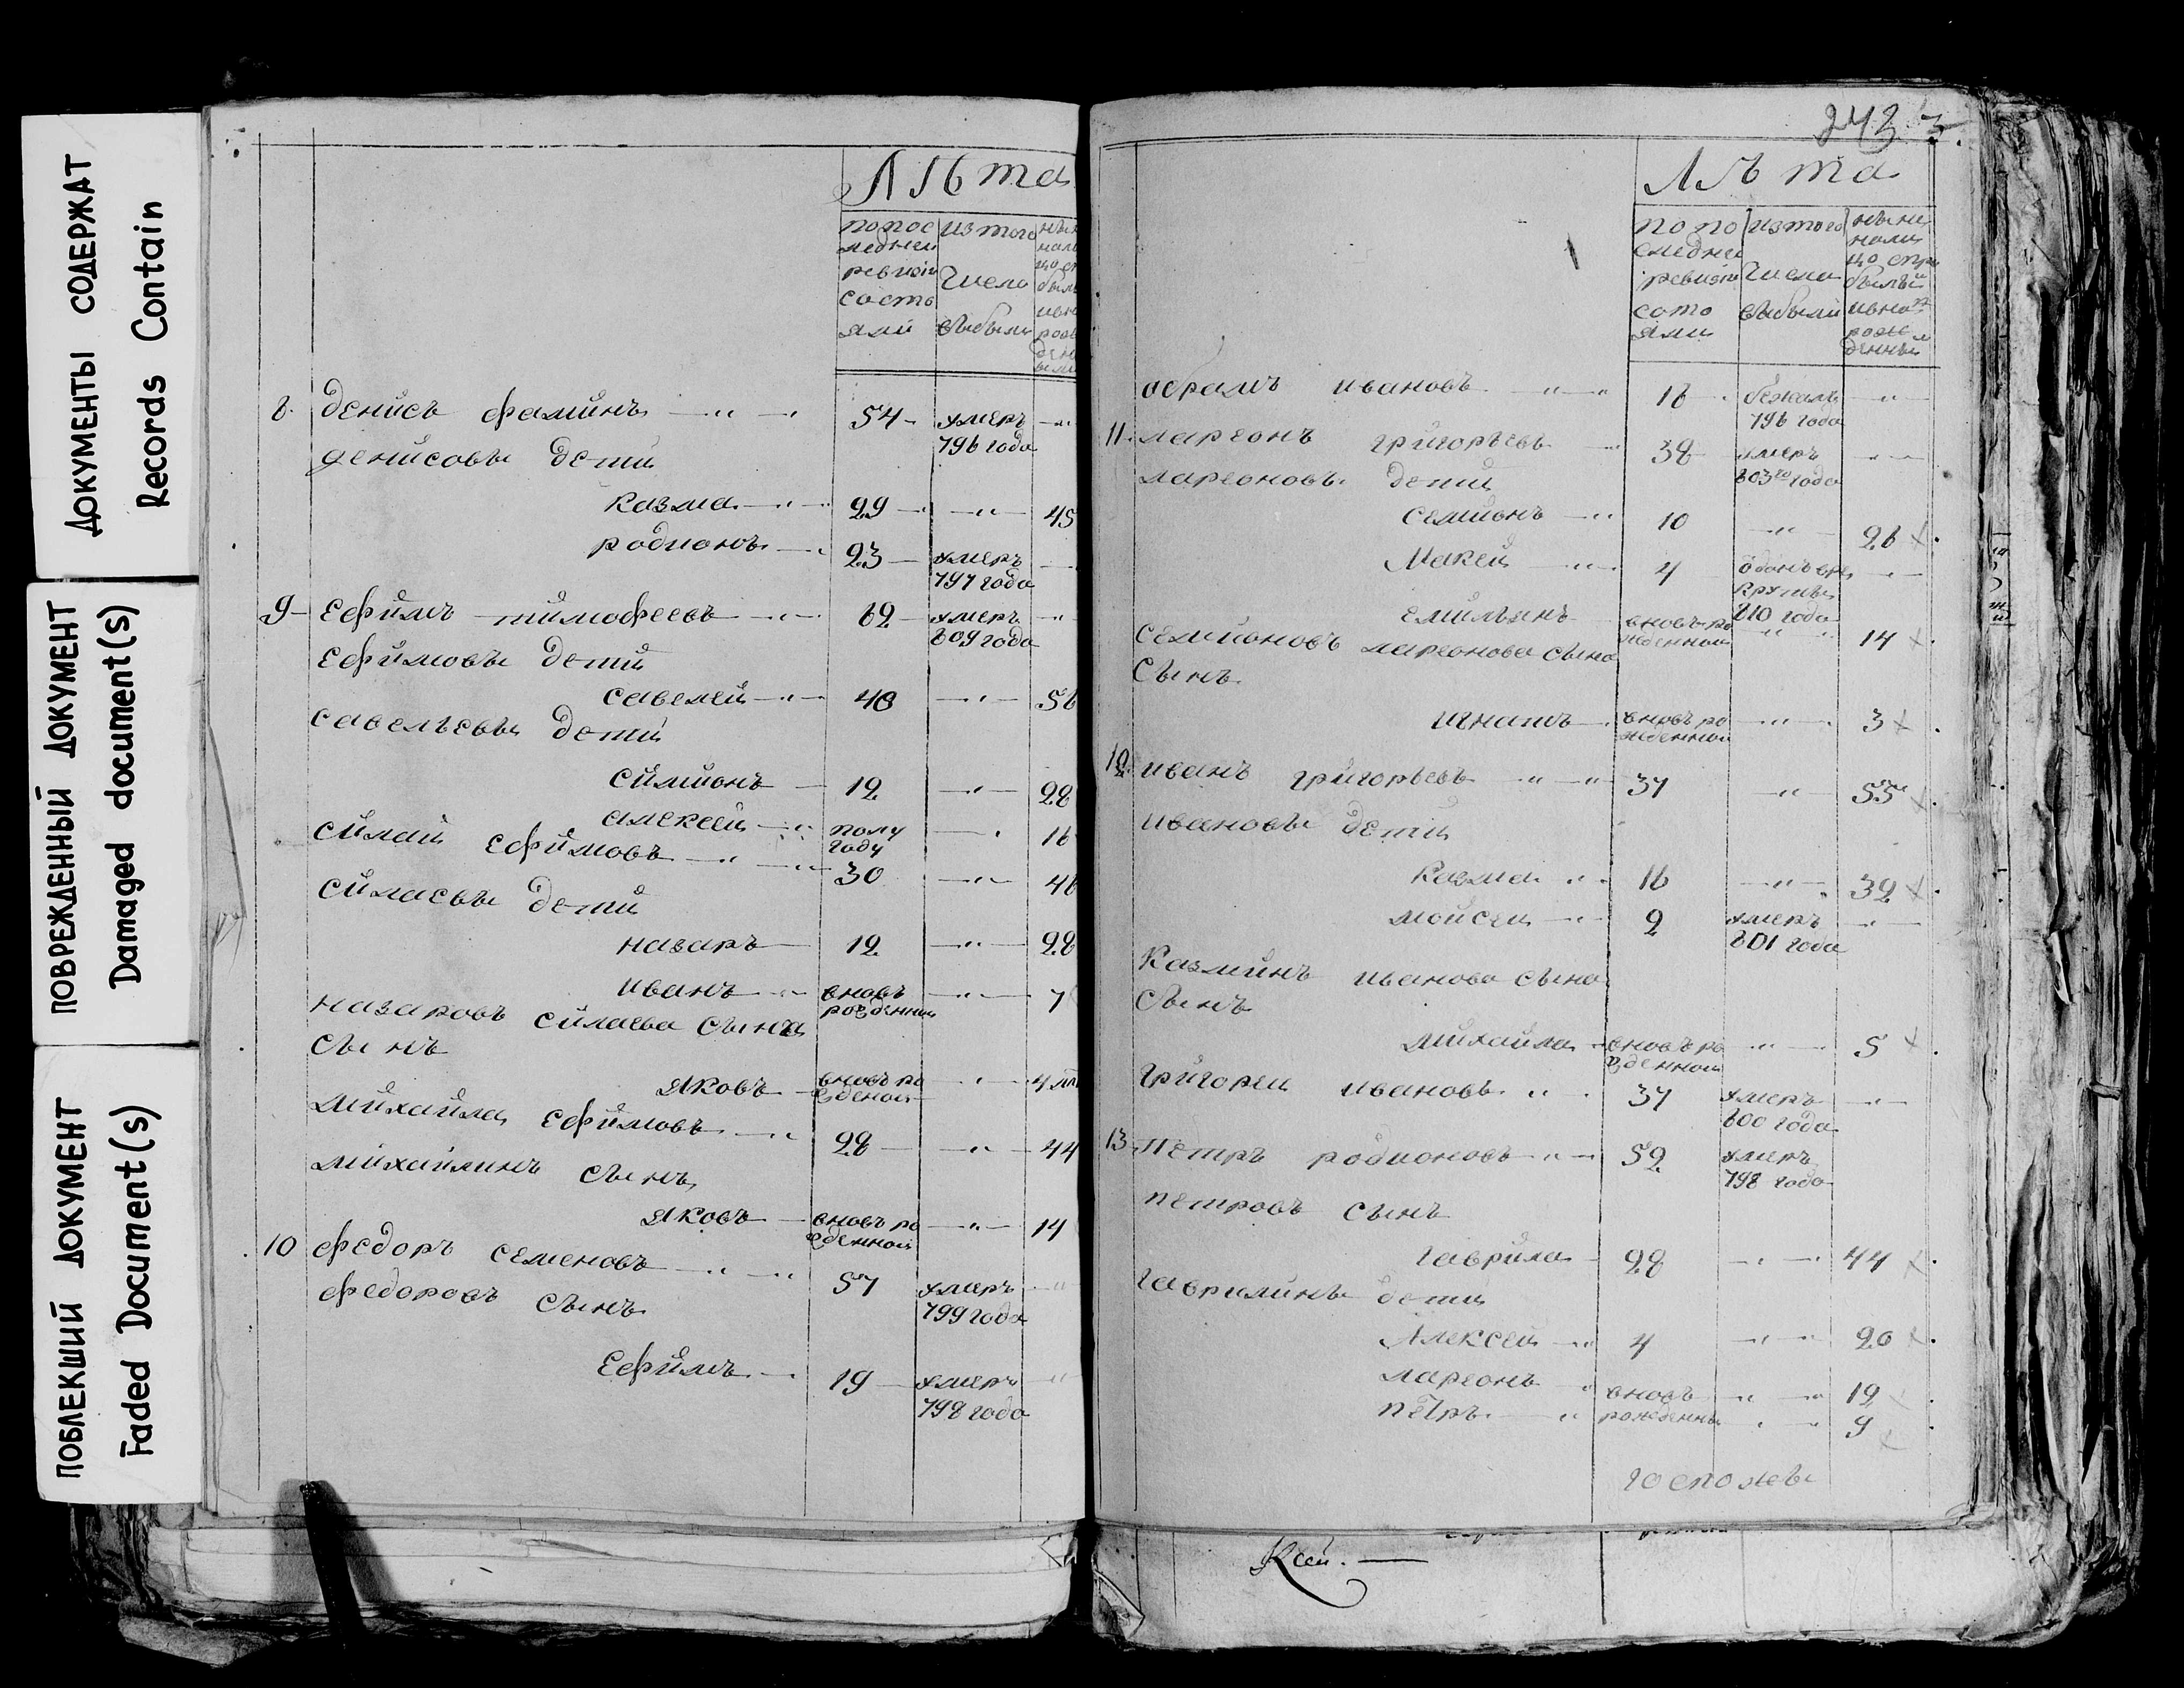 ДОКУМЕНТЫ СОДЕРЖАТ
Records Contain
ПОВРЕЖДЕННЫЙ ДОКУМЕНТ
Damaged document(s)
ПОБЛЕКШИЙ ДОКУМЕНТ
Faded Document(s)
Лѣта
попос изтого
ледней
ревизiи числа
состо
яли выбыли
8. денисъ фаминъ 54 умеръ
796 года
денисовы дети
казма 29 45
родионъ 23 умеръ
797 года
9 Ефимъ тимофеевъ 62 умеръ
809 года
Ефимовы дети
савелей 40 56
савельевы дети
симионъ 12 28
алексей полу 16
году
силай Ефимовъ 30 46
силаевы дети
назаръ 12 28
иванъ вновь 7
рожденни
назаровъ силаева сына
сынъ
яковъ вновь ро 4
жденой
михайла Ефимовъ 28 44
михайлинъ сынъ
яковъ вновь ро 14
жденной
10 федоръ семеновъ 57 умеръ
799 года
федоровъ сынъ
Ефимъ 19 умеръ
798 года
243
Лѣта
по по изтого ныне
следне нали
ревизiи числа цо
состо былый
яли выбыли ивно
рож
денный
абрамъ ивановъ 16 бежалъ
796 года
11. лареонъ григорьевъ 38 умеръ
803го года
лареоновы дети
семионъ 10 26
Макей 4 оданъ вре
круты
810 года
емильянъ вновь ро 14
жденной
семионовъ лареонова сына
сынъ
игнатъ вновь ро 3
жденной
12. иванъ григорьевъ 37 55
ивановы дети
казма 16 32
мойсей 2 умеръ
801 года
казминъ иванова сына
сынъ
михайла вновь ро 5
жденной
григорей ивановъ 37 умеръ
800 года
13 петръ родионовъ 52 умеръ
798 года
петровъ сынъ
гаврила 28 44
гаврилины дети
Алексей 4 20
лареонъ вновь 12
петръ рожденны 9
госпожъ